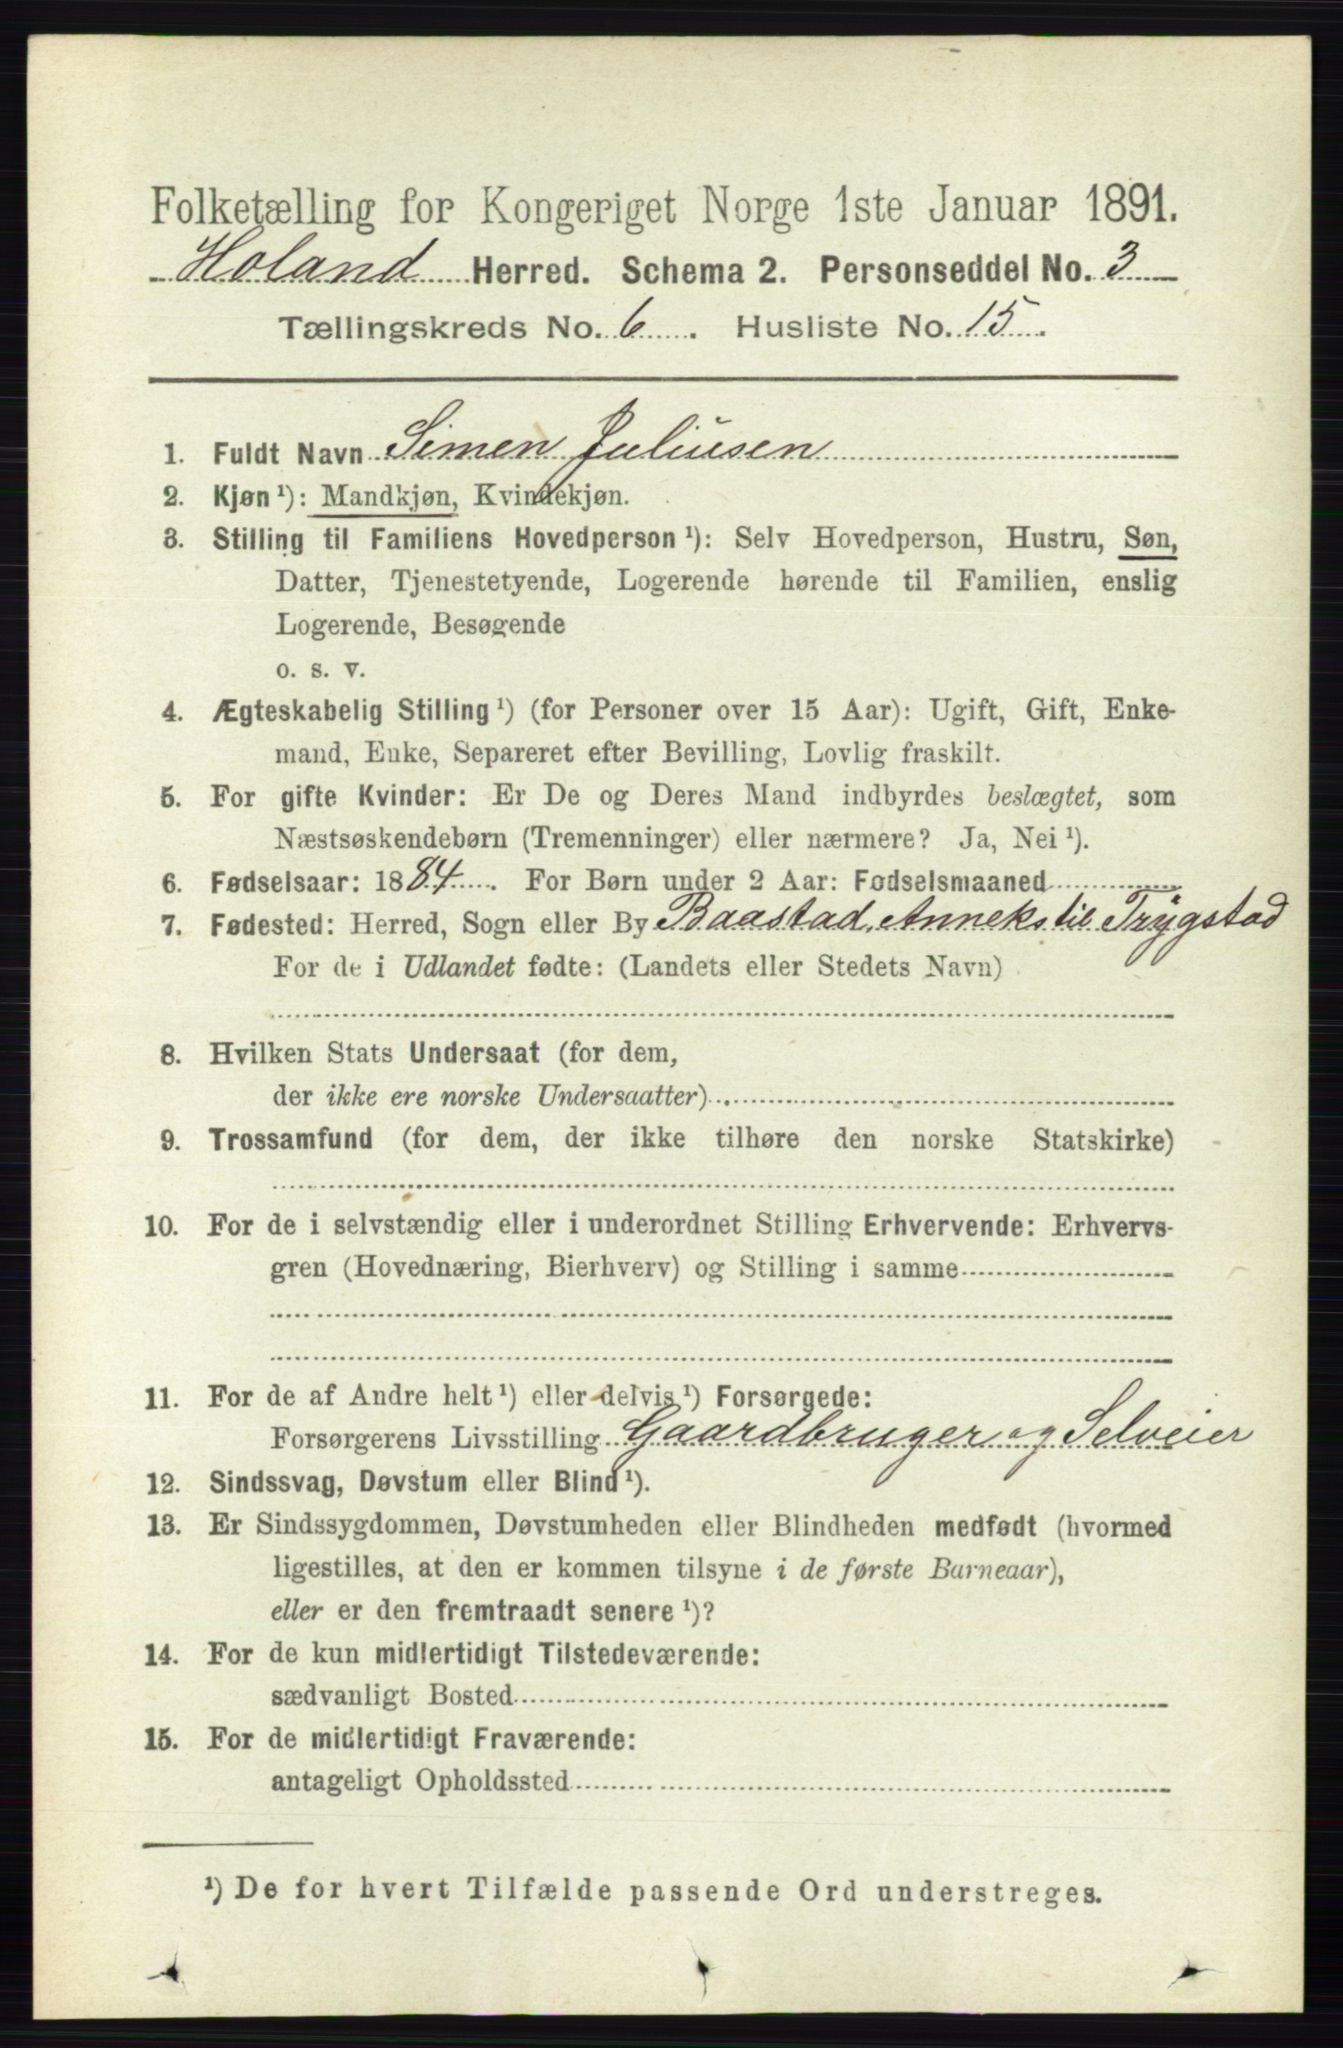 Folketælling for Kongeriget Norge 1ste Januar 1891.
Holand Herred. Schema 2. Personseddel No. 3
Tællingskreds No. 6. Husliste No. 15.
1. Fuldt Navn Simen Juliusen
2. Kjøn ¹): Mandkjøn, Kvindekjøn.
3. Stilling til Familiens Hovedperson ¹): Selv Hovedperson, Hustru, Søn,
Datter, Tjenestetyende, Logerende hørende til Familien, enslig
Logerende, Besøgende
o. s. v.
4. Ægteskabelig Stilling ¹) (for Personer over 15 Aar): Ugift, Gift, Enke-
mand, Enke, Separeret efter Bevilling, Lovlig fraskilt.
5. For gifte Kvinder: Er De og Deres Mand indbyrdes beslægtet, som
Næstsøskendebørn (Tremenninger) eller nærmere? Ja, Nei ¹).
6. Fødselsaar: 1884. For Børn under 2 Aar: Fødselsmaaned
7. Fødested: Herred, Sogn eller By Baastad, Anneks til Trygstad
For de i Udlandet fødte: (Landets eller Stedets Navn)
8. Hvilken Stats Undersaat (for dem,
der ikke ere norske Undersaatter)
9. Trossamfund (for dem, der ikke tilhøre den norske Statskirke)
10. For de i selvstændig eller i underordnet Stilling Erhvervende: Erhvervs-
gren (Hovednæring, Bierhverv) og Stilling i samme
11. For de af Andre helt ¹) eller delvis ¹) Forsørgede:
Forsørgerens Livsstilling Gaardbruger og Selveier
12. Sindssvag, Døvstum eller Blind ¹).
13. Er Sindssygdommen, Døvstumheden eller Blindheden medfødt (hvormed
ligestilles, at den er kommen tilsyne i de første Barneaar),
eller er den fremtraadt senere ¹)?
14. For de kun midlertidigt Tilstedeværende:
sædvanligt Bosted
15. For de midlertidigt Fraværende:
antageligt Opholdssted
¹) De for hvert Tilfælde passende Ord understreges.